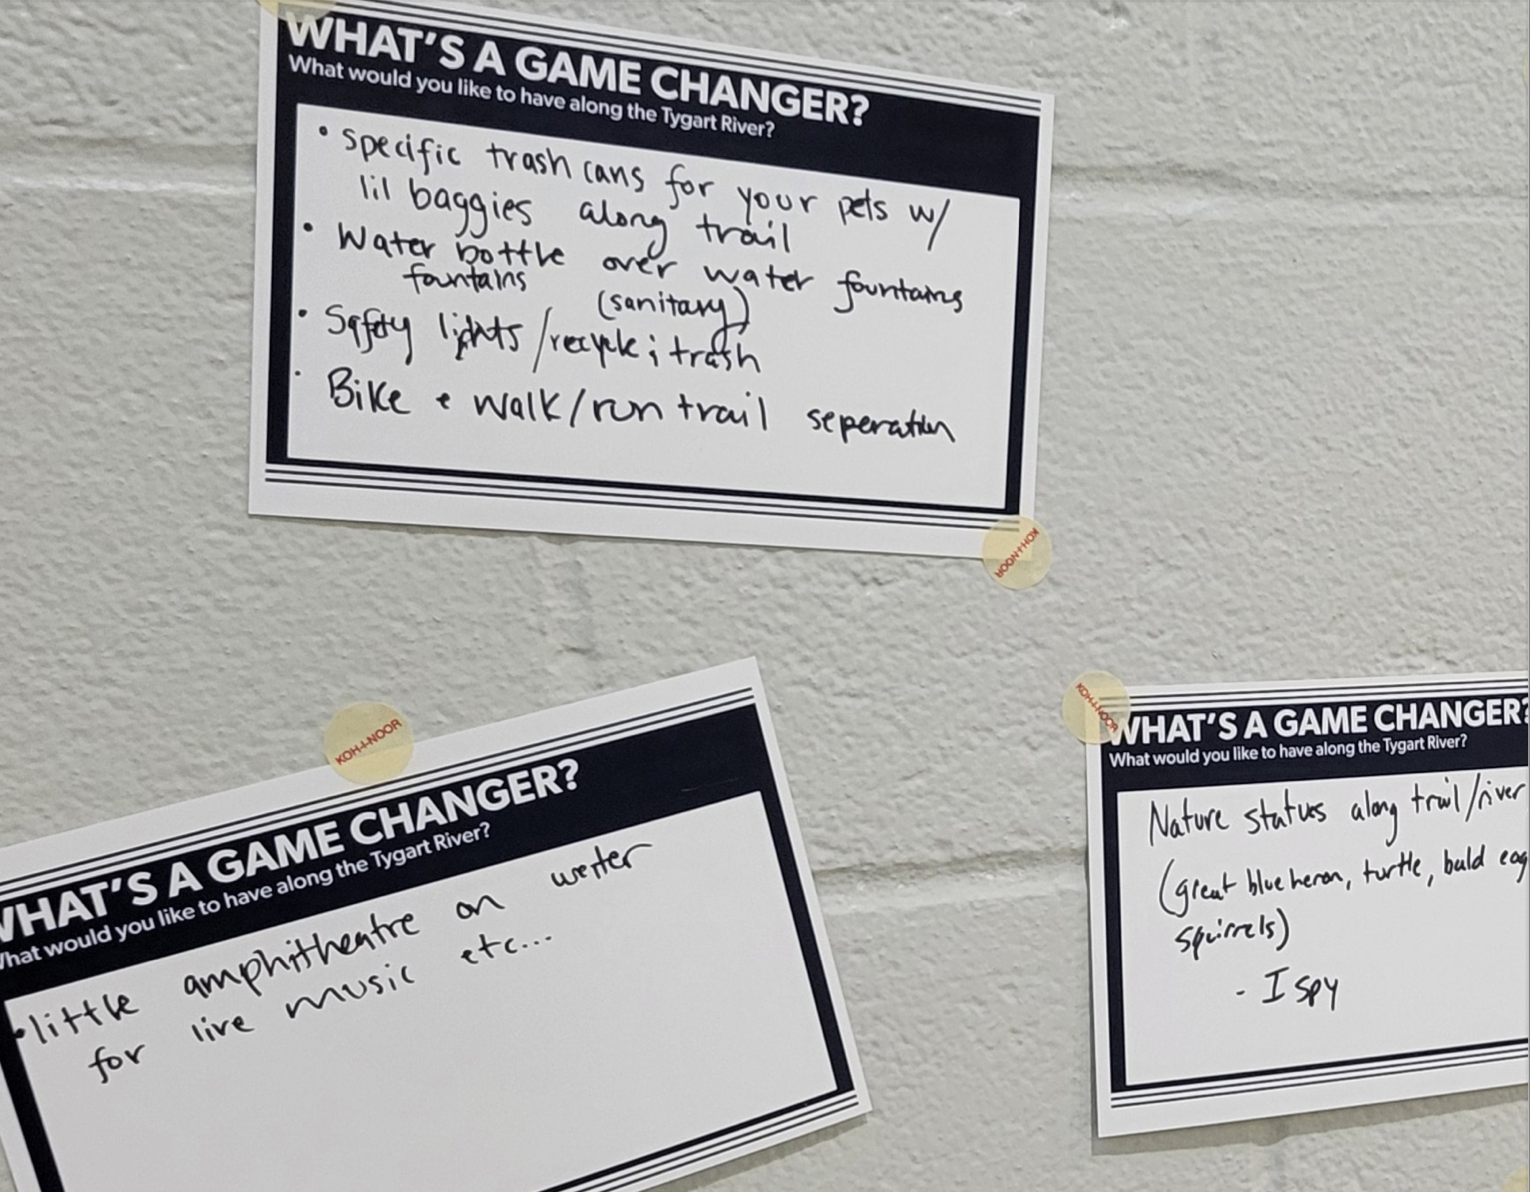 WHAT'S A GAME CHANGER?
What would you like to have along the Tygart River?
• specific trash cans for your pets w/
lil baggies along trail
• Water bottle over water fountains
fountains (sanitary)
• Safety lights/recycle; trash
• Bike & walk/run trail seperation
KOH-I-NOOR
KOH-I-NOOR
WHAT'S A GAME CHANGER?
What would you like to have along the Tygart River?
• little amphitheatre on
for live music etc...
KOH-I-NOOR
WHAT'S A GAME CHANGER?
What would you like to have along the Tygart River?
Nature status along trail/river
(great blue heron, turtle, bald eag
squirrels)
- I spy